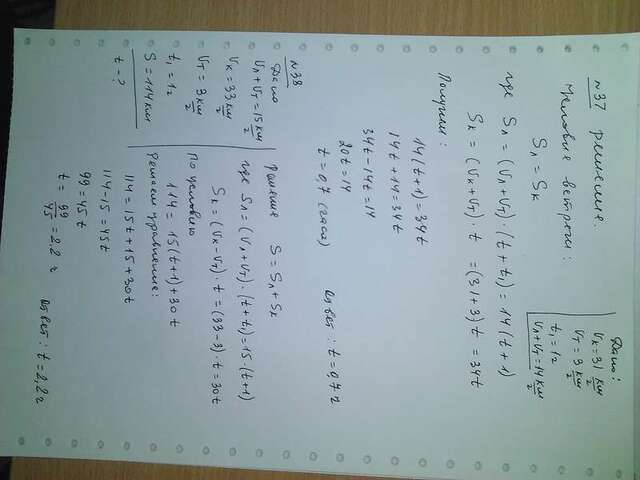 №37 решение.
Дано:
Vк=31 км/г
Vт=3 км/г
t₁=1г
Vл+Vт=14 км/г
Условие встречи:
Sл=Sк
где Sл=(Vл+Vт)·(t+t₁)=14(t+1)
Sк=(Vк+Vт)·t=(31+3)t=34t
Получили:
14(t+1)=34t
14t+14=34t
34t-14t=14
20t=14
t=0,7 (часа)
ответ: t=0,7г
№38
Дано
Vл+Vт=15 км/г
Vк=33 км/г
Vт=3 км/г
t₁=1г
S=114 км
t-?
Решение S=Sл+Sк
где Sл=(Vл+Vт)·(t+t₁)=15·(t+1)
Sк=(Vк-Vт)·t=(33-3)·t=30t
По условию
114=15(t+1)+30t
Решаем уравнение:
114=15t+15+30t
114-15=45t
99=45t
t=99/45=2,2г
ответ: t=2,2г